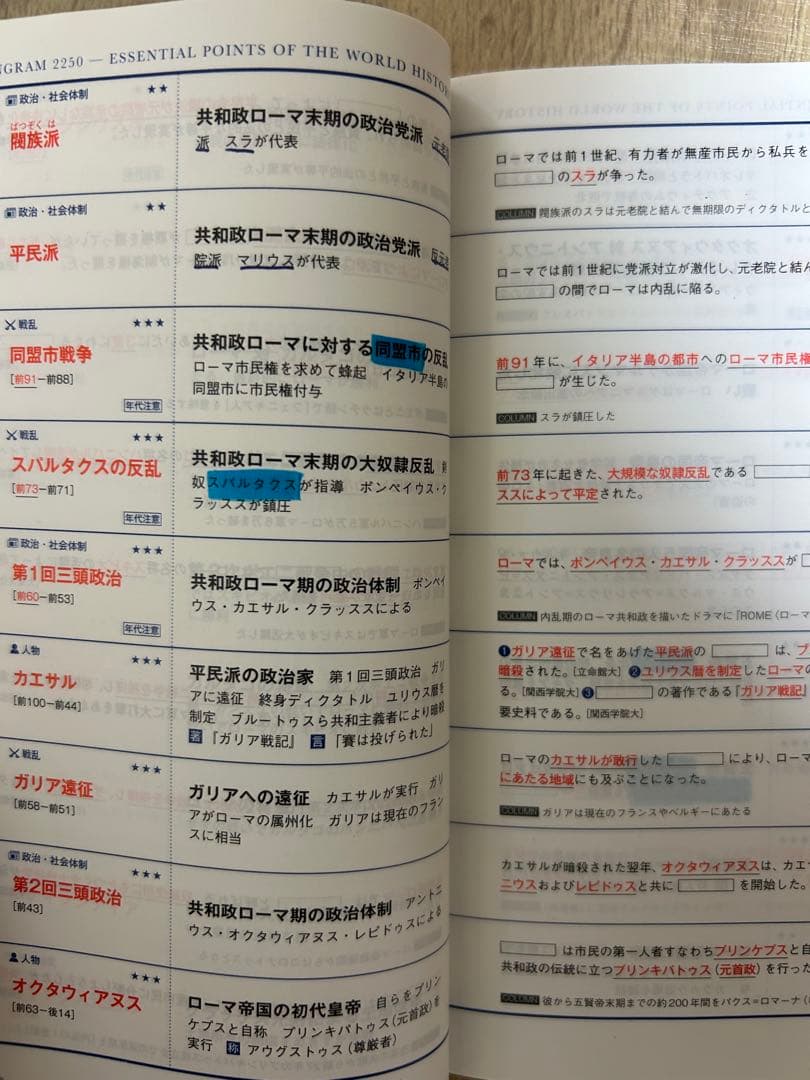 NGRAM 2250 — ESSENTIAL POINTS OF THE WORLD HISTO
政治・社会体制 ★★
ばつぞく は
閥族派
共和政ローマ末期の政治党派 元老院
派 スラが代表
政治・社会体制 ★★
平民派
共和政ローマ末期の政治党派 反元老
院派 マリウスが代表
戦乱 ★★★
同盟市戦争
[前91−前88]
年代注意
共和政ローマに対する同盟市の反乱
ローマ市民権を求めて蜂起 イタリア半島の
同盟市に市民権付与
戦乱 ★★★
スパルタクスの反乱
[前73−前71]
年代注意
共和政ローマ末期の大奴隷反乱
奴スパルタクスが指導 ポンペイウス・ク
ラッススが鎮圧
政治・社会体制 ★★★
第1回三頭政治
[前60−前53]
年代注意
共和政ローマ期の政治体制 ポンペイ
ウス・カエサル・クラッススによる
人物 ★★★
カエサル
[前100−前44]
平民派の政治家 第1回三頭政治 ガリ
アに遠征 終身ディクタトル ユリウス暦を
制定 ブルートゥスら共和主義者により暗殺
著『ガリア戦記』 言「賽は投げられた」
戦乱 ★★★
ガリア遠征
[前58−前51]
ガリアへの遠征 カエサルが実行 ガリ
アがローマの属州化 ガリアは現在のフラン
スに相当
政治・社会体制 ★★★
第2回三頭政治
[前43]
共和政ローマ期の政治体制 アントニ
ウス・オクタウィアヌス・レピドゥスによる
人物 ★★★
オクタウィアヌス
[前63−後14]
ローマ帝国の初代皇帝 自らをプリン
ケプスと自称 プリンキパトゥス(元首政)を
実行 称 アウグストゥス(尊厳者)
ローマでは前1世紀、有力者が無産市民から私兵を
のスラが争った。
COLUMN 閥族派のスラは元老院と結んで無期限のディクタトルと
ローマでは前1世紀に党派対立が激化し、元老院と結ん
の間でローマは内乱に陥る。
前91年に、イタリア半島の都市へのローマ市民権
が生じた。
COLUMN スラが鎮圧した
前73年に起きた、大規模な奴隷反乱である
ススによって平定された。
ローマでは、ポンペイウス・カエサル・クラッススが
COLUMN 内乱期のローマ共和政を描いたドラマに『ROME〈ローマ
❶ガリア遠征で名をあげた平民派の は、ブ
暗殺された。[立命館大] ❷ユリウス暦を制定したローマの
る。[関西学院大] ❸ の著作である『ガリア戦記』
要史料である。[関西学院大]
ローマのカエサルが敢行した により、ローマ
にあたる地域にも及ぶことになった。
COLUMN ガリアは現在のフランスやベルギーにあたる
カエサルが暗殺された翌年、オクタウィアヌスは、カエ
ニウスおよびレピドゥスと共に を開始した。
は市民の第一人者すなわちプリンケプスと自
共和政の伝統に立つプリンキパトゥス(元首政)を行った
COLUMN 彼から五賢帝末期までの約200年間をパクス=ロマーナ(